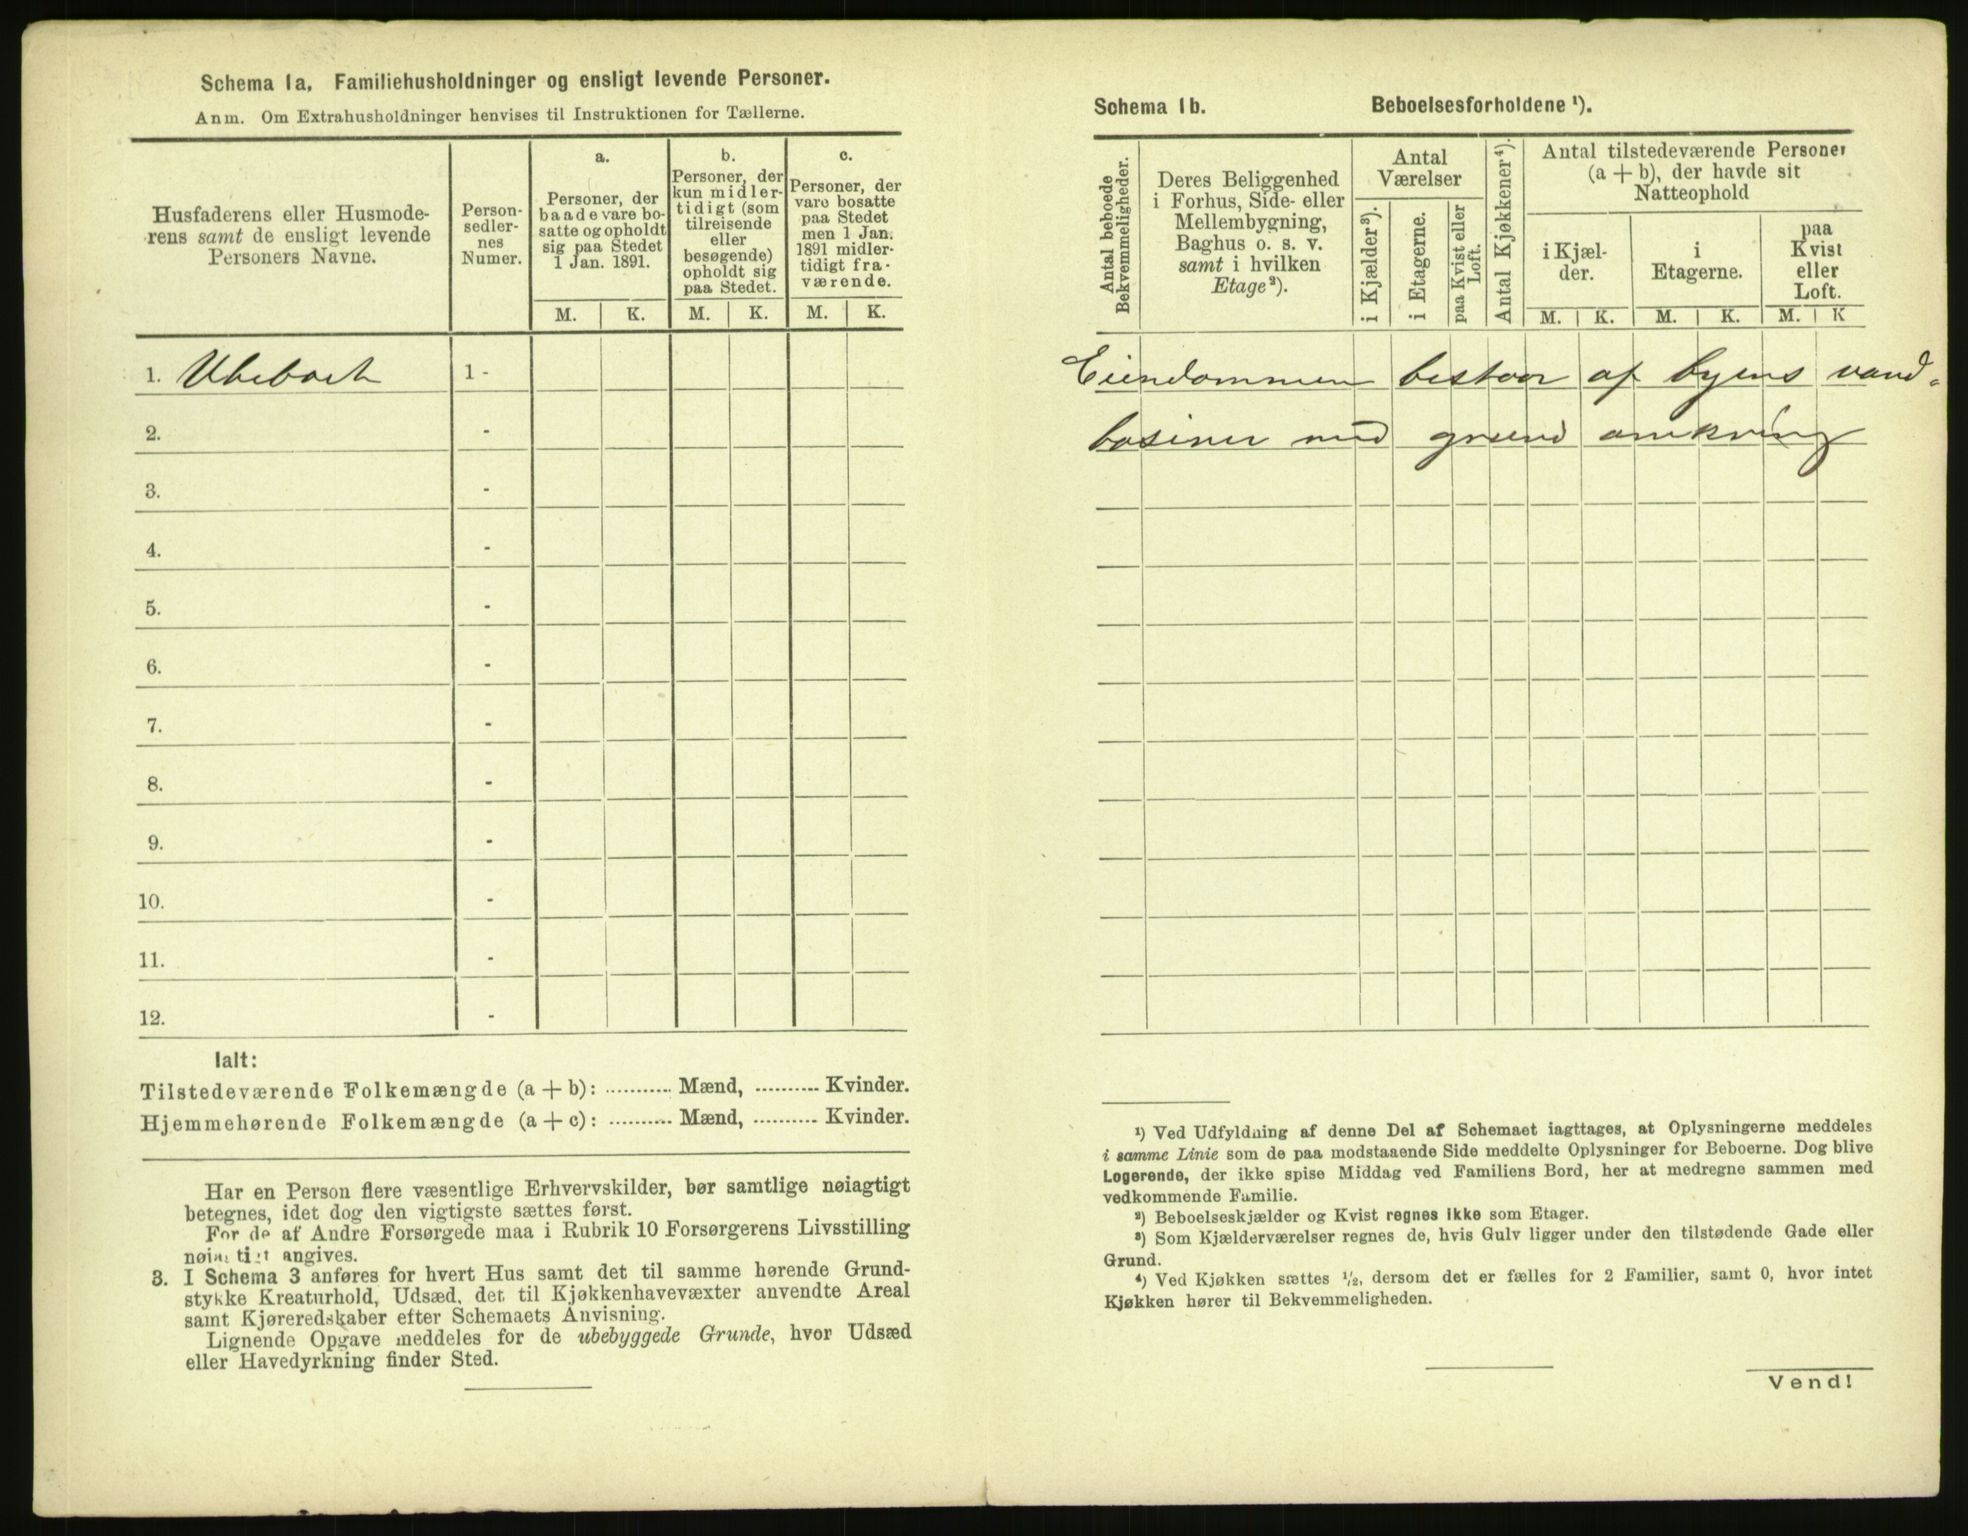 Schema 1a, Familiehusholdninger og ensligt levende Personer.
Anm. Om Extrahusholdninger henvises til Instruktionen for Tællerne.
Husfaderens eller Husmode-
rens samt de ensligt levende
Personers Navne.
Person-
sedler-
nes
Numer.
a.
Personer, der
baade vare bo-
satte og opholdt
sig paa Stedet
1 Jan. 1891.
b.
Personer, der
kun midler-
tidigt (som
tilreisende
eller
besøgende)
opholdt sig
paa Stedet.
c.
Personer, der
vare bosatte
paa Stedet
men 1 Jan.
1891 midler-
tidigt fra-
værende.
M. K. M. K. M. K.
1. Ubeboet 1 -
2. -
3. -
4. -
5. -
6. -
7. -
8. -
9. -
10. -
11. -
12. -
Ialt:
Tilstedeværende Folkemængde (a + b): ........... Mænd, .......... Kvinder.
Hjemmehørende Folkemængde (a + c): ........... Mænd, .......... Kvinder.
Har en Person flere væsentlige Erhvervskilder, bør samtlige nøiagtigt
betegnes, idet dog den vigtigste sættes først.
For de af Andre Forsørgede maa i Rubrik 10 Forsørgerens Livsstilling
nøiagtigt angives.
3. I Schema 3 anføres for hvert Hus samt det til samme hørende Grund-
stykke Kreaturhold, Udsæd, det til Kjøkkenhavevæxter anvendte Areal
samt Kjøreredskaber efter Schemaets Anvisning.
Lignende Opgave meddeles for de ubebyggede Grunde, hvor Udsæd
eller Havedyrkning finder Sted.
Schema 1b. Beboelsesforholdene ¹).
Antal beboede
Bekvemmeligheder.
Deres Beliggenhed
i Forhus, Side- eller
Mellembygning,
Baghus o. s. v.
samt i hvilken
Etage²).
Antal
Værelser
i Kjælder³).
i Etagerne.
paa Kvist eller
Loft.
Antal Kjøkkener⁴).
Antal tilstedeværende Personer
(a + b), der havde sit
Natteophold
i Kjæl-
der.
i
Etagerne.
paa
Kvist
eller
Loft.
M. K. M. K. M. K
Eiendommen bestaar af byens vand-
basiner med grund omkring
¹) Ved Udfyldning af denne Del af Schemaet iagttages, at Oplysningerne meddeles
i samme Linie som de paa modstaaende Side meddelte Oplysninger for Beboerne. Dog blive
Logerende, der ikke spise Middag ved Familiens Bord, her at medregne sammen med
vedkommende Familie.
²) Beboelseskjælder og Kvist regnes ikke som Etager.
³) Som Kjælderværelser regnes de, hvis Gulv ligger under den tilstødende Gade eller
Grund.
⁴) Ved Kjøkken sættes ½, dersom det er fælles for 2 Familier, samt 0, hvor intet
Kjøkken hører til Bekvemmeligheden.
Vend!